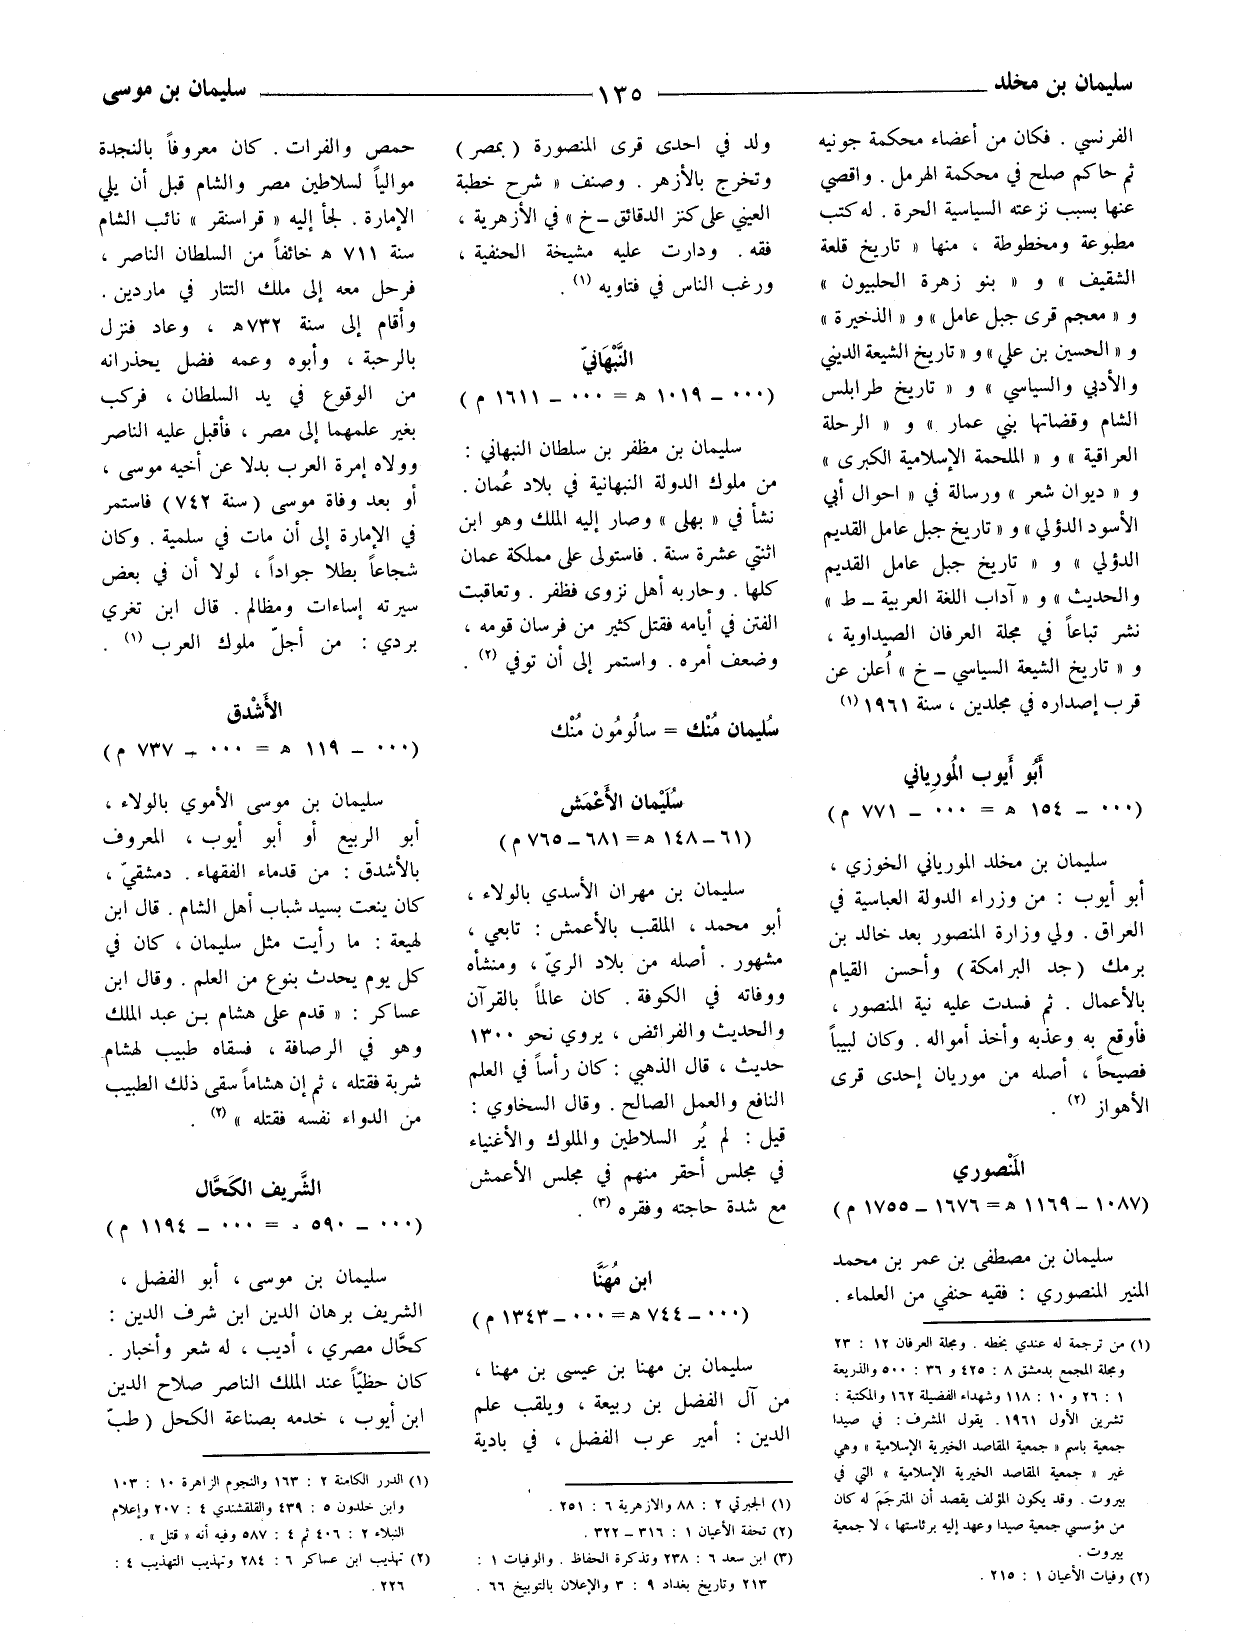 سليمان بن مخلد ــــــ ١٣٥ ــــــ سليمان بن موسى
الفرنسي . فكان من أعضاء محكمة جونيه
ثم حاكم صلح في محكمة الهرمل . واقصي
عنها بسبب نزعته السياسية الحرة . له كتب
مطبوعة ومخطوطة ، منها « تاريخ قلعة
الشقيف » و « بنو زهرة الحلبيون »
و « معجم قرى جبل عامل » و « الذخيرة »
و « الحسين بن علي » و « تاريخ الشيعة الديني
والأدبي والسياسي » و « تاريخ طرابلس
الشام وقضاتها بني عمار » و « الرحلة
العراقية » و « الملحمة الإسلامية الكبرى »
و « ديوان شعر » ورسالة في « احوال أبي
الأسود الدؤلي » و « تاريخ جبل عامل القديم
الدؤلي » و « تاريخ جبل عامل القديم
والحديث » و « آداب اللغة العربية ــ ط »
نشر تباعاً في مجلة العرفان الصيداوية ،
و « تاريخ الشيعة السياسي ــ خ » أُعلن عن
قرب إصداره في مجلدين ، سنة ١٩٦١ (١)
أَبُو أَيوب المُورِياني
(٠٠٠ ــ ١٥٤ ه = ٠٠٠ ــ ٧٧١ م)
سليمان بن مخلد المورياني الخوزي ،
أبو أيوب : من وزراء الدولة العباسية في
العراق . ولي وزارة المنصور بعد خالد بن
برمك (جد البرامكة) وأحسن القيام
بالأعمال . ثم فسدت عليه نية المنصور ،
فأوقع به وعذبه وأخذ أمواله . وكان لبيباً
فصيحاً ، أصله من موريان إحدى قرى
الأهواز (٢) .
المَنْصوري
(١٠٨٧ ــ ١١٦٩ ه = ١٦٧٦ ــ ١٧٥٥ م)
سليمان بن مصطفى بن عمر بن محمد
المنير المنصوري : فقيه حنفي من العلماء .
(١) من ترجمة له عندي بخطه . ومجلة العرفان ١٢ : ٢٣
ومجلة المجمع بدمشق ٨ : ٤٢٥ و ٣٦ : ٥٠٠ والذريعة
١ : ٢٦ و ١٠ : ١١٨ وشهداء الفضيلة ١٦٢ والمكتبة :
تشرين الأول ١٩٦١ . يقول المشرف : في صيدا
جمعية باسم « جمعية المقاصد الخيرية الإسلامية » وهي
غير « جمعية المقاصد الخيرية الإسلامية » التي في
بيروت . وقد يكون المؤلف يقصد أن المترجَم له كان
من مؤسسي جمعية صيدا وعهد إليه برئاستها ، لا جمعية
بيروت .
(٢) وفيات الأعيان ١ : ٢١٥ .
ولد في احدى قرى المنصورة (بمصر)
وتخرج بالأزهر . وصنف « شرح خطبة
العيني على كنز الدقائق ــ خ » في الأزهرية ،
فقه . ودارت عليه مشيخة الحنفية ،
ورغب الناس في فتاويه (١) .
النَّبْهَانيّ
(٠٠٠ ــ ١٠١٩ ه = ٠٠٠ ــ ١٦١١ م)
سليمان بن مظفر بن سلطان النبهاني :
من ملوك الدولة النبهانية في بلاد عُمان .
نشأ في « بهلى » وصار إليه الملك وهو ابن
اثنتي عشرة سنة . فاستولى على مملكة عمان
كلها . وحاربه أهل نزوى فظفر . وتعاقبت
الفتن في أيامه فقتل كثير من فرسان قومه ،
وضعف أمره . واستمر إلى أن توفي (٢) .
سُليمان مُنْك = سالُومُون مُنْك
سُلَيْمان الأَعْمَش
(٦١ ــ ١٤٨ ه = ٦٨١ ــ ٧٦٥ م)
سليمان بن مهران الأسدي بالولاء ،
أبو محمد ، الملقب بالأعمش : تابعي ،
مشهور . أصله من بلاد الريّ ، ومنشأه
ووفاته في الكوفة . كان عالماً بالقرآن
والحديث والفرائض ، يروي نحو ١٣٠٠
حديث ، قال الذهبي : كان رأساً في العلم
النافع والعمل الصالح . وقال السخاوي :
قيل : لم يُر السلاطين والملوك والأغنياء
في مجلس أحقر منهم في مجلس الأعمش
مع شدة حاجته وفقره (٣) .
ابن مُهَنَّا
(٠٠٠ ــ ٧٤٤ ه = ٠٠٠ ــ ١٣٤٣ م)
سليمان بن مهنا بن عيسى بن مهنا ،
من آل الفضل بن ربيعة ، ويلقب علم
الدين : أمير عرب الفضل ، في بادية
(١) الجبرتي ٢ : ٨٨ والازهرية ٦ : ٢٥١ .
(٢) تحفة الأعيان ١ : ٣١٦ ــ ٣٢٢ .
(٣) ابن سعد ٦ : ٢٣٨ وتذكرة الحفاظ . والوفيات ١ :
٢١٣ وتاريخ بغداد ٩ : ٣ والإعلان بالتوبيخ ٦٦ .
حمص والفرات . كان معروفاً بالنجدة
موالياً لسلاطين مصر والشام قبل أن يلي
الإمارة . لجأ إليه « قراسنقر » نائب الشام
سنة ٧١١ ه خائفاً من السلطان الناصر ،
فرحل معه إلى ملك التتار في ماردين .
وأقام إلى سنة ٧٣٢ه ، وعاد فنزل
بالرحبة ، وأبوه وعمه فضل يحذرانه
من الوقوع في يد السلطان ، فركب
بغير علمهما إلى مصر ، فأقبل عليه الناصر
وولاه إمرة العرب بدلا عن أخيه موسى ،
أو بعد وفاة موسى (سنة ٧٤٢) فاستمر
في الإمارة إلى أن مات في سلمية . وكان
شجاعاً بطلا جواداً ، لولا أن في بعض
سيرته إساءات ومظالم . قال ابن تغري
بردي : من أجلّ ملوك العرب (١) .
الأَشْدق
(٠٠٠ ــ ١١٩ ه = ٠٠٠ ــ ٧٣٧ م)
سليمان بن موسى الأموي بالولاء ،
أبو الربيع أو أبو أيوب ، المعروف
بالأشدق : من قدماء الفقهاء . دمشقيّ ،
كان ينعت بسيد شباب أهل الشام . قال ابن
لهيعة : ما رأيت مثل سليمان ، كان في
كل يوم يحدث بنوع من العلم . وقال ابن
عساكر : « قدم على هشام بن عبد الملك
وهو في الرصافة ، فسقاه طبيب لهشام
شربة فقتله ، ثم إن هشاماً سقى ذلك الطبيب
من الدواء نفسه فقتله » (٢) .
الشَّريف الكَحَّال
(٠٠٠ ــ ٥٩٠ ه = ٠٠٠ ــ ١١٩٤ م)
سليمان بن موسى ، أبو الفضل ،
الشريف برهان الدين ابن شرف الدين :
كحَّال مصري ، أديب ، له شعر وأخبار .
كان حظيّاً عند الملك الناصر صلاح الدين
ابن أيوب ، خدمه بصناعة الكحل (طبّ
(١) الدرر الكامنة ٢ : ١٦٣ والنجوم الزاهرة ١٠ : ١٠٣
وابن خلدون ٥ : ٤٣٩ والقلقشندي ٤ : ٢٠٧ وإعلام
النبلاء ٢ : ٤٠٦ ثم ٤ : ٥٨٧ وفيه أنه « قتل » .
(٢) تهذيب ابن عساكر ٦ : ٢٨٤ وتهذيب التهذيب ٤ :
٢٢٦ .